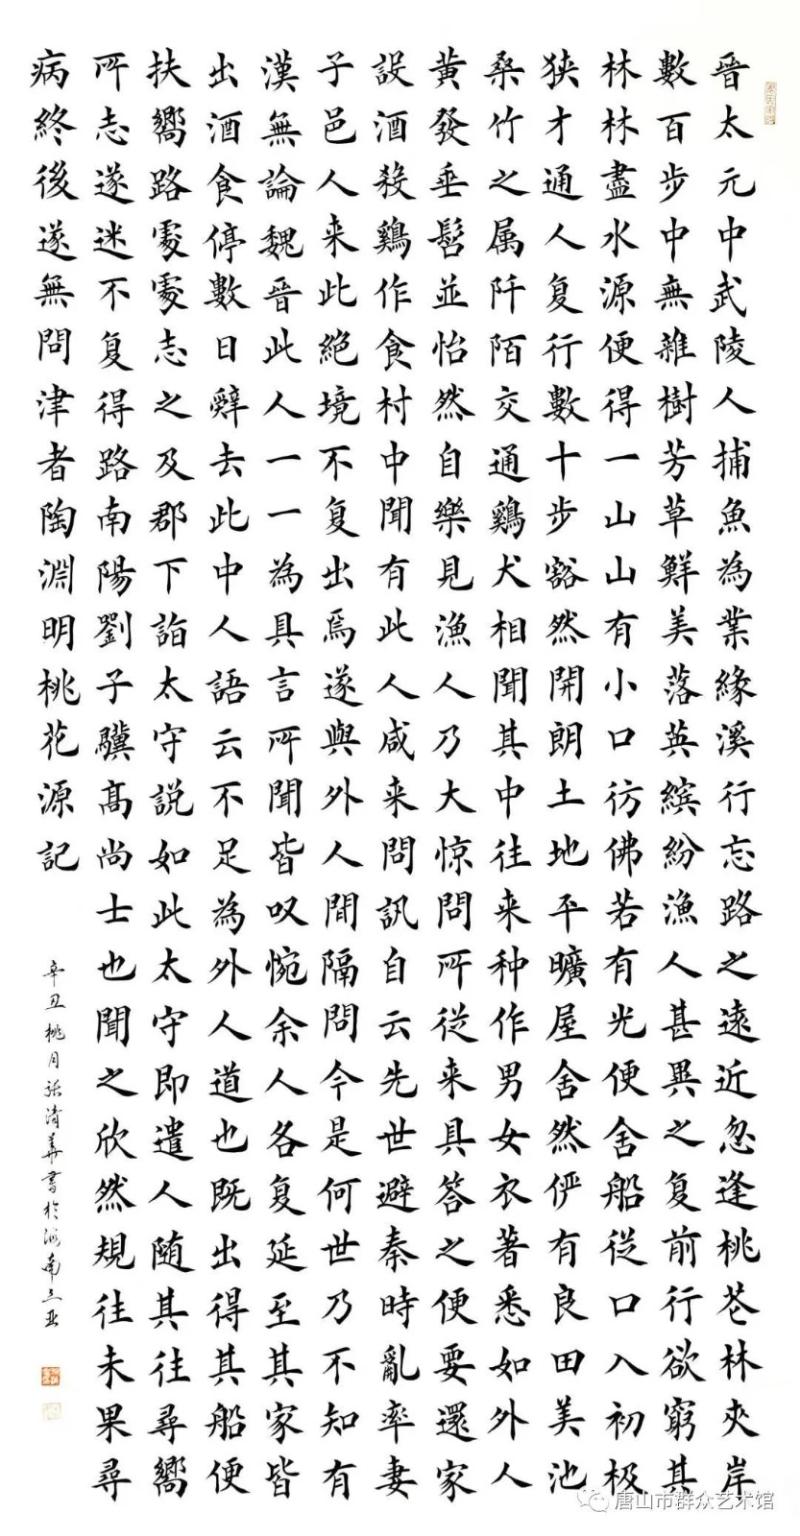 晉太元中武陵人捕魚為業緣溪行忘路之遠近忽逢桃芲林夾岸
數百步中無雜樹芳草鮮美落英繽紛漁人甚異之复前行欲窮其
林林盡水源便得一山山有小口彷佛若有光便舍船從口入初極
狹才通人复行數十步豁然開朗土地平曠屋舍然俨有良田美池
桑竹之属阡陌交通鷄犬相聞其中往来种作男女衣著悉如外人
黄發垂髫並怡然自樂見漁人乃大惊問所從来具答之便要還家
設酒殺鷄作食村中聞有此人咸来問訊自云先世避秦時亂率妻
子邑人来此絕境不复出焉遂與外人間隔問今是何世乃不知有
漢無論魏晉此人一一為具言所聞皆叹惋余人各复延至其家皆
出酒食停數日辭去此中人語云不足為外人道也既出得其船便
扶嚮路處處志之及郡下詣太守説如此太守即遣人随其往尋嚮
所志遂迷不复得路南陽劉子驥高尚士也聞之欣然規往未果尋
病終後遂無問津者陶淵明桃花源記
辛丑桃月張清華書於海南三亚
唐山市群众艺术馆